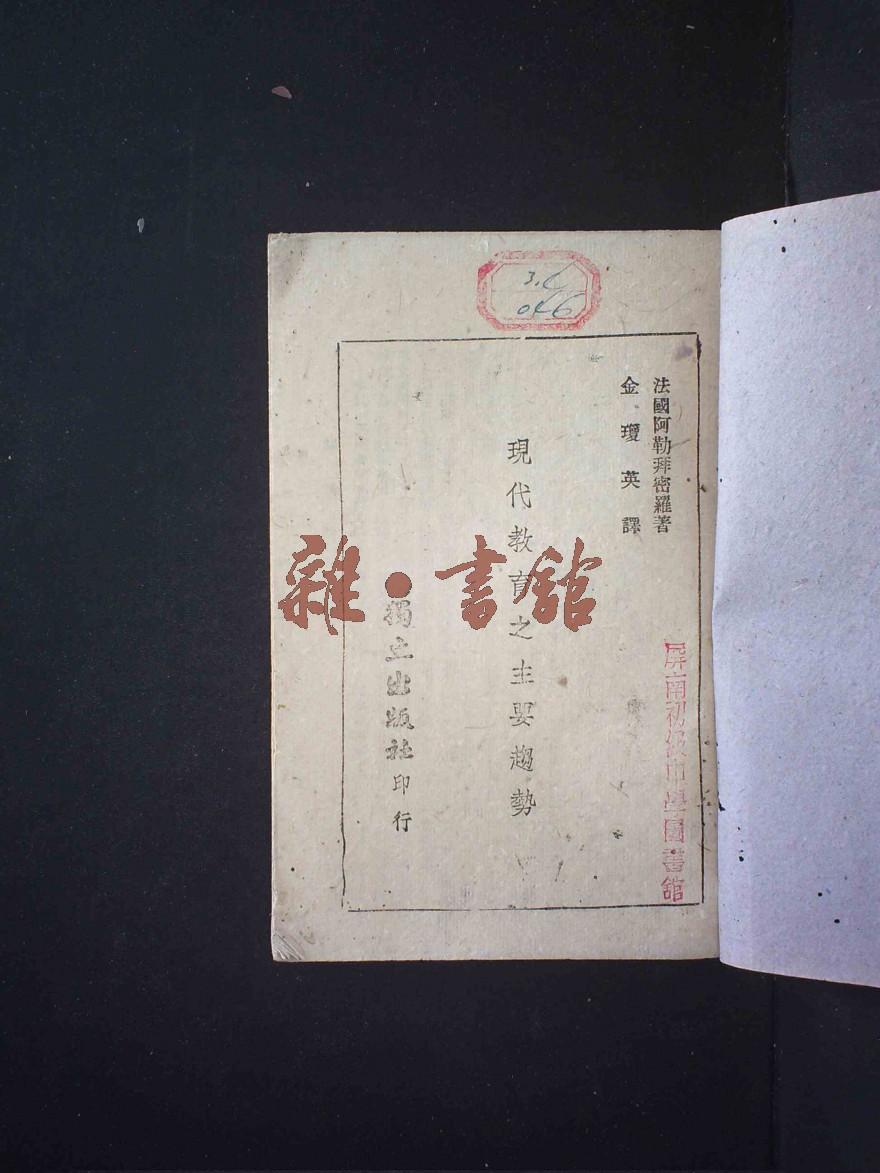 法國阿勒拜密羅著
金瓊英譯
現代教育之主要趨勢
獨立出版社印行
屏南初級中學圖書館
3.6
046
雜·書館